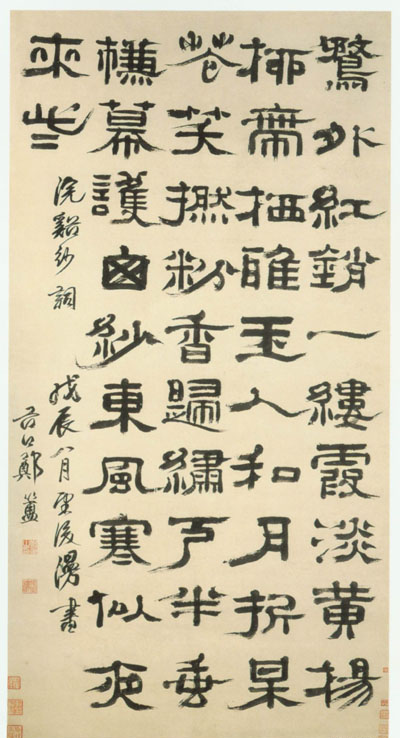 鶩外紅銷一縷霞淡黃揚
柳帶栖雅玉人和月折某
花笑撚粉香歸繡戶半垂
幕護囪紗東風寒似夜
來些
浣谿紗詞 戊辰八月望後漫書
谷口鄭簠